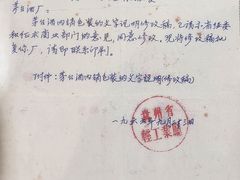 茅台酒厂：
茅台酒内销包装的文字说明修改稿，已请示省经委
和征求商业部门的意见，同意修改，现将修改稿批
复你厂，请即联系印制。
附件：茅台酒内销包装的文字说明（修改稿）
一九六六年九月二十三日
贵州省
轻工业厅